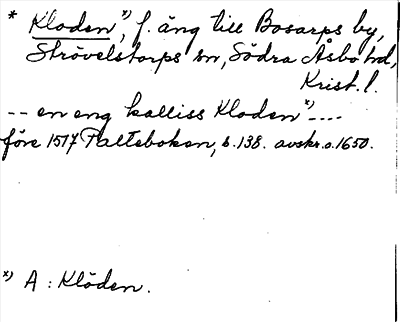 * Kloden *), f. äng till Bosarps by,
Strövelstorps sn, Södra Åsbo hd,
Krist. l.
-- en eng kalliss Kloden *) ----
före 1517 Palteboken, s. 138. avskr. o. 1650.
*) A : Klöden.